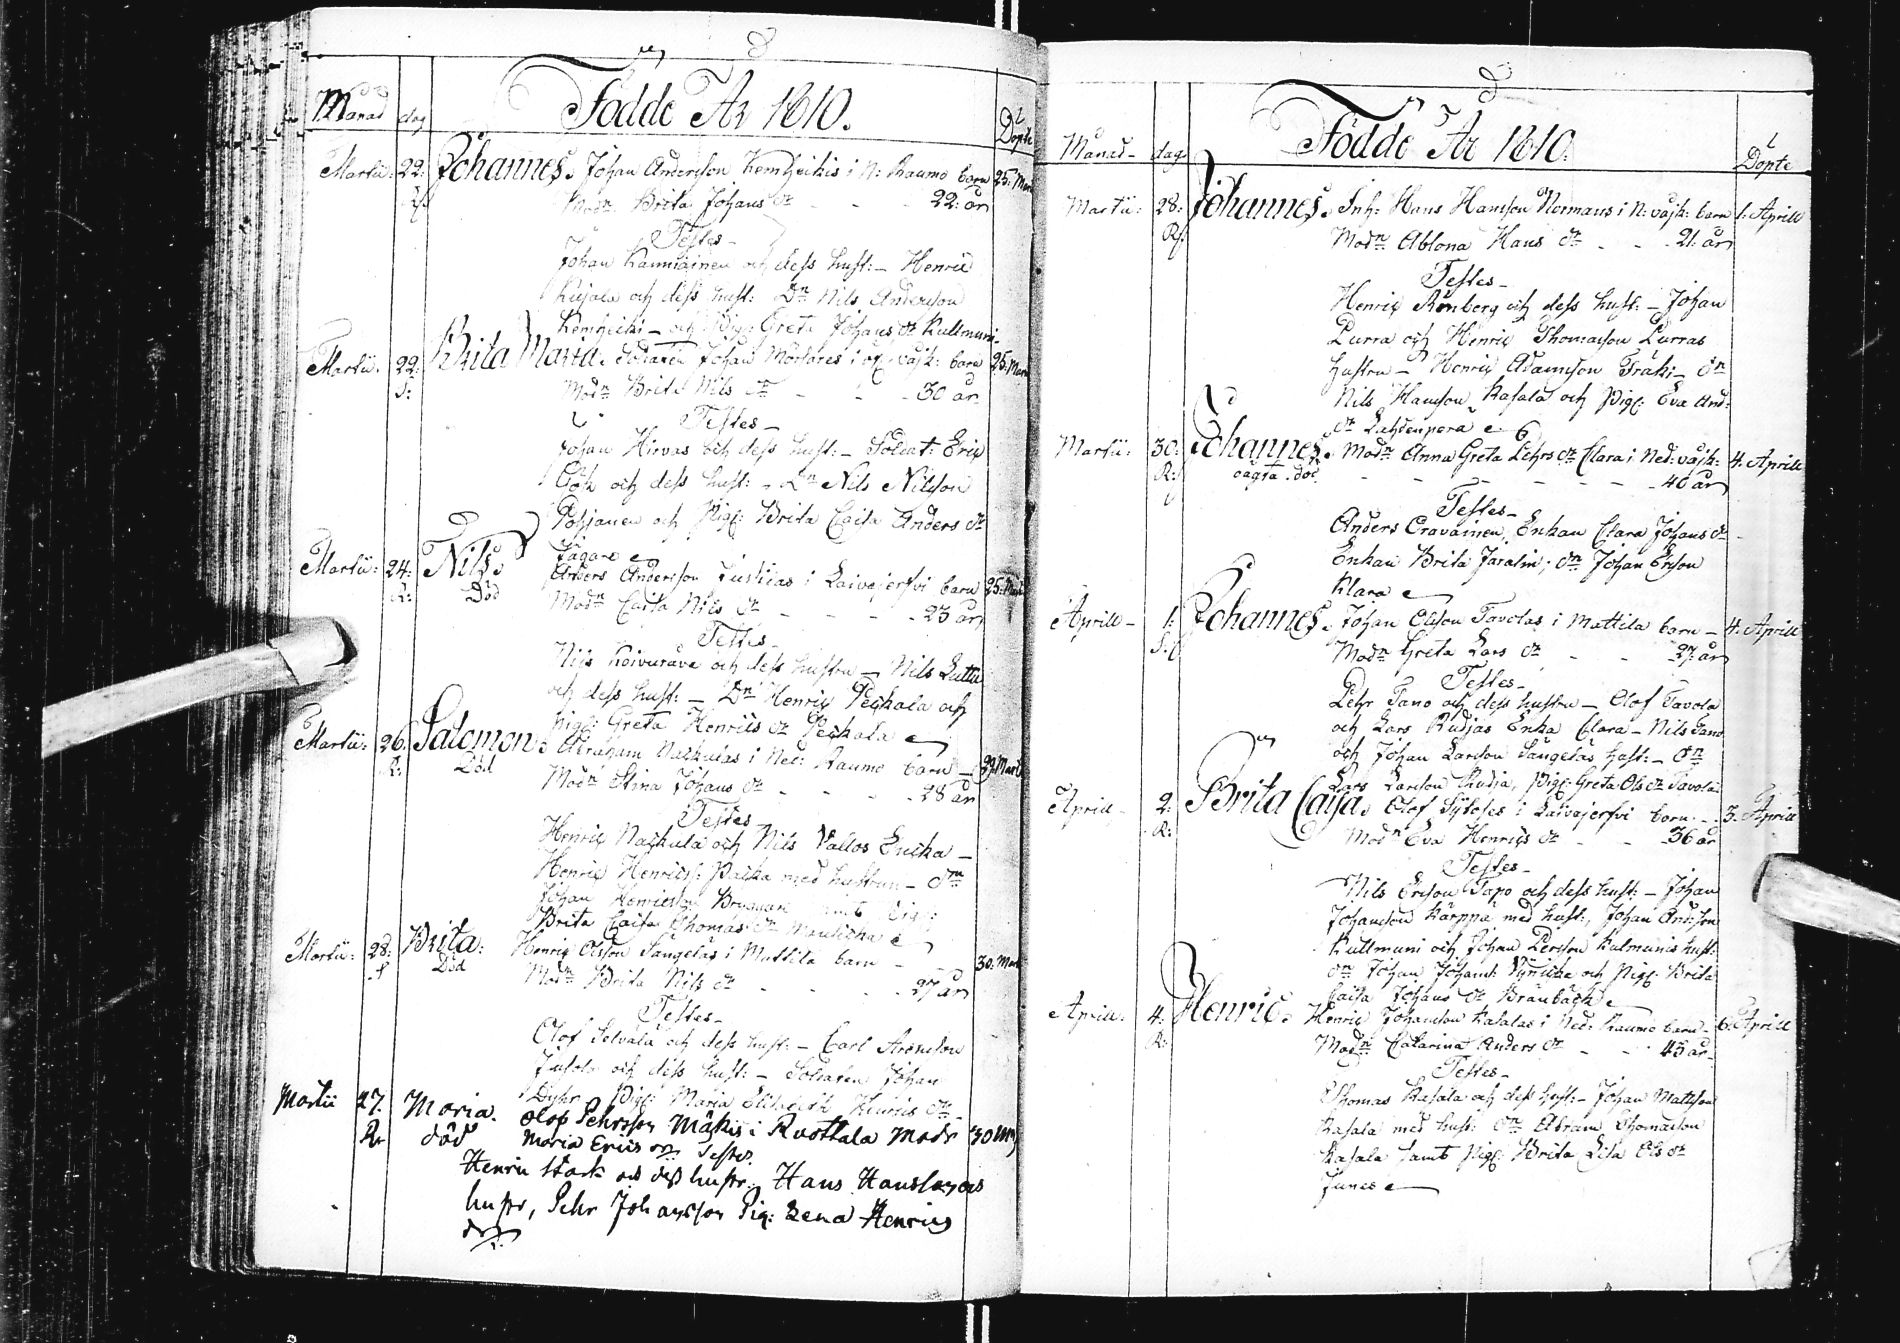 Månad dag Födde År 1810. Döpte
Martii: 22: Johannes. Johan Andersson Kemheikis i N: Raumo barn 25: Mar
Modn Brita Johans dr - - - 22: år
Testes -
Johan Kanniainen och dess hust: - Henric
Kujala och dess hust: Dn Nils Andersson
Kemheiki - och Pig: Greta Johans dr Kullmuni
Martii: 22: Brita Maria. Soldaten Johan Mörtares i vajk: barn 25: Mar
S: Modn Brita Nils dr - - - 30 år
Testes -
Johan Hirvas och dess hust: - Soldat: Eric
och dess hust: - Dn Nils Nilsson
Pohjanen och Pig: Brita Caisa Anders dr
Jägare
Martii: 24: Nils. Anders Andersson Justiias i Laivajerfvi barn 25: Mar
R: Död Modn Caisa Nils dr - - - 23 år
Testes -
Nils Koivurava och dess hustru - Nils Luttu
och dess hust: - Dn Henric Peckala och
pig: Greta Henrics dr Peckala
Martii: 26. Salomon. Abraham Nackulas i Ned: Raumo barn - 29 Marti
R: Död Modn Stina Johans dr - - - 28 år
Testes
Henric Nackula och Nils Vallos Encka -
Henric Henrics: Paska med hustrun - Drn
Johan Henricson samt Pig:
Brita Caisa Thomas dr
Martii: 28: Brita: Henric Olsson Sangelas i Mattila barn - 30: Mar
S Död Modn Brita Nils dr - - - 27 år
Testes -
Olof Selvala och dess hust: - Carl Aronsson
Juloln och dess hust: - Soldaten Johan
Dyhr Pig: Maria Elisabeth Henrics dr -
Martii 27. Maria. Olof Pehrsson Mäkis i Ruottala Modr 30 M
R död Maria Erics dr Testes.
Henric Stark och dess hustr. Hans Hanslays
hustr, Pehr Johansson Pig: Lena Henrics
dr
Månad - dag Födde År 1810. Döpte
Martii: 28: Johannes. Inh: Hans Hansson Normans i N: vajk: barn 1: Aprill
R: Modn Ablona Hans dr - - - 21: år
Testes -
Henric Rönberg och dess hust: - Johan
Purra och Henric Thomasson Purras
hustru - Henric Adamsson Fräki - dn
Nils Hansson Kasala och Pig: Eva And:
dr Lahdenpera
Martii: 30: Johannes. Modn Anna Greta Pehrs dr Clara i Ned: vajk: 4: Aprill
R: oägta. död - - - 40 år
Testes -
Anders Oravainen, Enkan Clara Johans dr
Enkan Brita Jaralin, drn Johan Ersson
Klara
Aprill - 1: Johannes. Johan Olsson Tavolas i Mattila barn - 4: Aprill
S: Modn Greta Lars dr - - 27: år
Testes -
Pehr Tano och dess hustru - Olof Tavola
och Lars Rudjas Enka Clara - Nils Tano
och Johan Larsson Sangelas hust: - Dn
Lars Larsson Rudja, Pig: Greta Ols dr Tavola
Aprill - 2: Brita Caisa. Olof Syväjes i Laivajerfvi barn - 3. Aprill
R: Modn Eva Henrics dr - - 36 år
Testes -
Nils Ersson Papo och dess hust: - Johan
Johansson Kärppa med hust:, Johan Andersson
Kullmuni och Johan Persson Kulmunis hust:
drn Johan Johans: Vyricka och Pig: Brita
Caisa Johans dr Bränback
Aprill: 4: Henric. Henric Johansson Kasalas i Ned: Raumo barn - 6. Aprill
R: Modn Catarina Anders dr - - 45 år -
Testes -
Thomas Kasala och dess hust: - Johan Mattsson
Kasala med hust: drn Abram Thomasson
Kasala samt Pig: Brita Lisa Ols dr
Junes